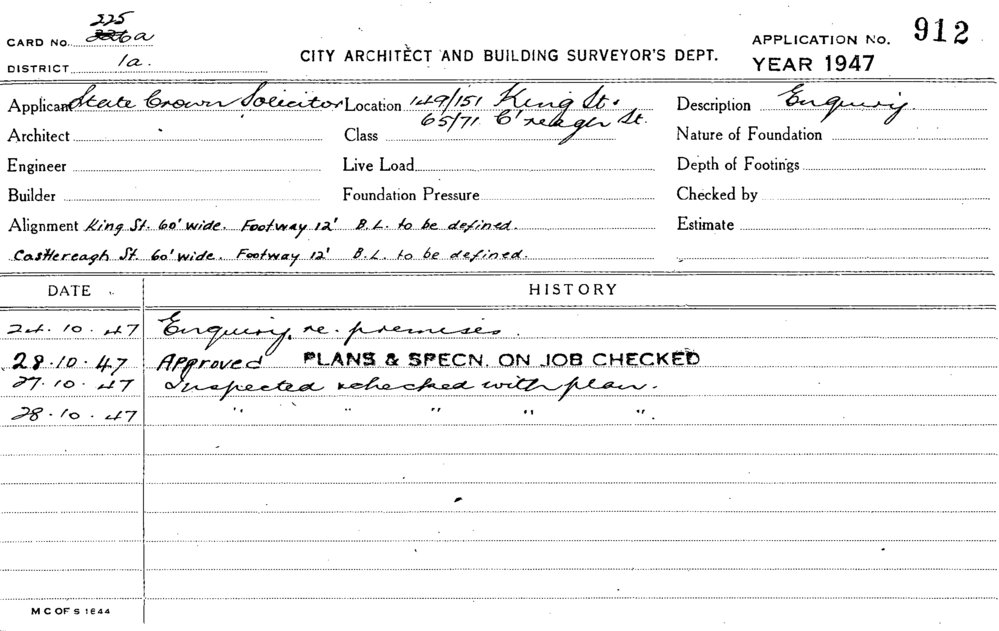 225
CARD No. 226a
DISTRICT 1a.
CITY ARCHITECT AND BUILDING SURVEYOR'S DEPT.
APPLICATION No. 912
YEAR 1947
Applicant State Crown Solicitor Location 149/151 King St. Description Enquiry.
65/71 C'reagh St.
Architect Class Nature of Foundation
Engineer Live Load Depth of Footings
Builder Foundation Pressure Checked by
Alignment King St. 60' wide. Footway 12' B.L. to be defined. Estimate
Castlereagh St. 60' wide. Footway 12' B.L. to be defined.
DATE HISTORY
24.10.47 Enquiry re. premises.
28.10.47 Approved PLANS & SPECN. ON JOB CHECKED
27.10.47 Inspected & checked with plan.
28.10.47 " " " " ".
M C OF S 1644